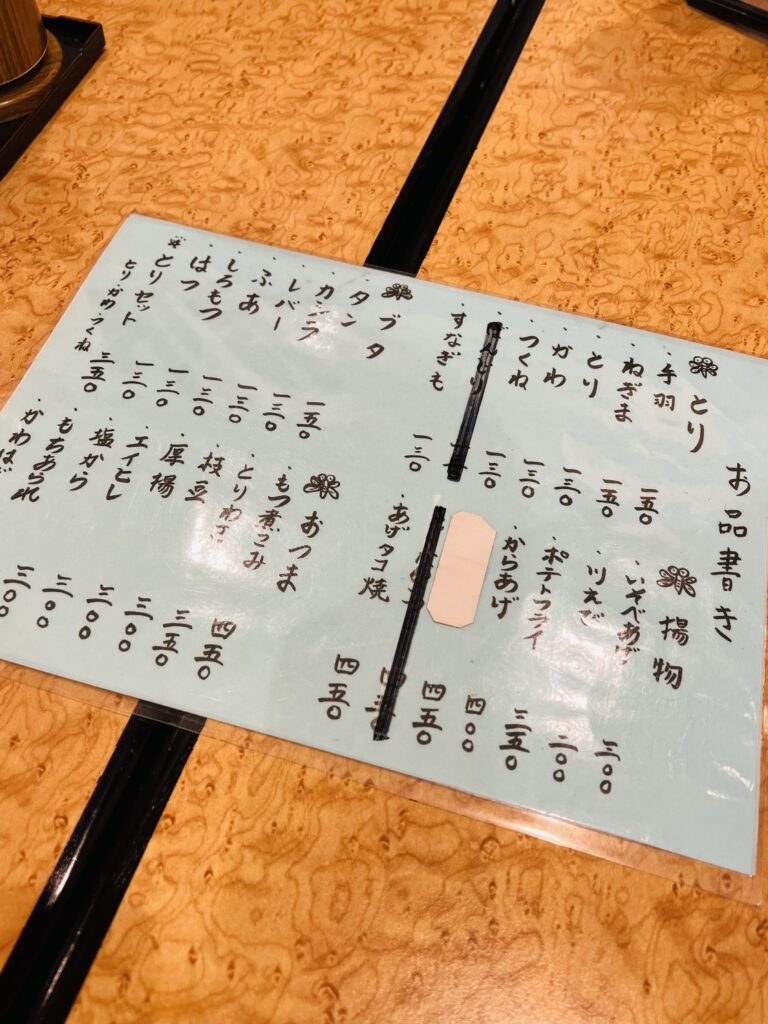 お品書き
とり
・手羽 一五〇
・ねぎま 一五〇
・とり 一三〇
・かわ 一三〇
・つくね 一三〇
・すなぎも 一三〇
揚物
・いそべあげ 三〇〇
・川えび 三〇〇
・ポテトフライ 三五〇
・からあげ 四〇〇
四五〇
・あげタコ焼 四五〇
ブタ
・タン 一五〇
・カシラ 一三〇
・レバー 一三〇
・ふあ 一三〇
・しろもつ 一三〇
・はつ 一三〇
とりセット
とり・かわ・つくね 三五〇
おつま
・もつ煮こみ 四五〇
・とりわさ 三五〇
・枝豆 三〇〇
・厚揚 三〇〇
・エイヒレ 三〇〇
・塩から 三〇〇
・もちあられ
・かわはぎ